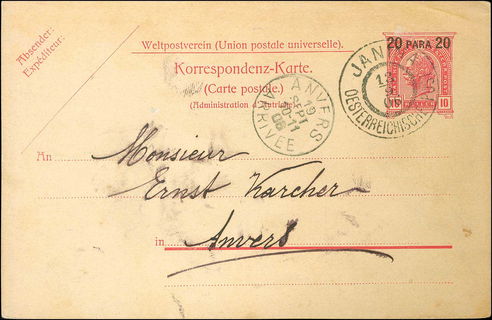 Absender:
Expéditeur:
Weltpostverein (Union postale universelle).
Korrespondenz-Karte.
(Carte postale.)
(Administration d'Autriche)
20 PARA 20
10
JAN
13
OESTERREICHISCHE
ANVERS
19
SEPT
06
ARRIVÉE
An Monsieur
Ernst Karcher
in Anvers